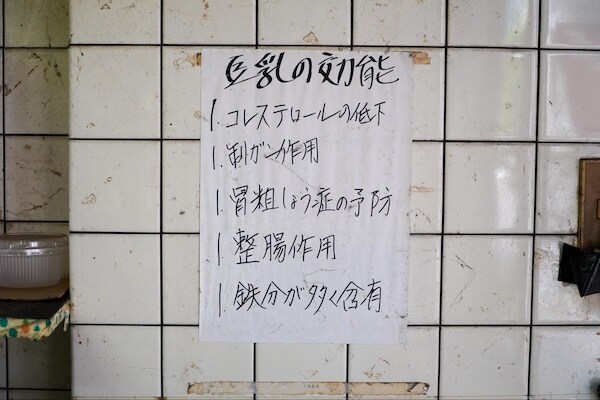 豆乳の効能
1. コレステロールの低下
1. 制ガン作用
1. 骨粗しょう症の予防
1. 整腸作用
1. 鉄分が多く含有